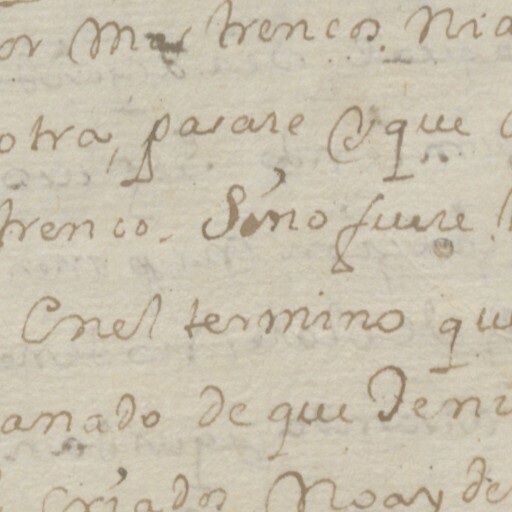 or Mostrencos Nia
otra pasare Y que
trenco. Sino fuere
Enel termino qu
anado de que Deni
Criados Noay de